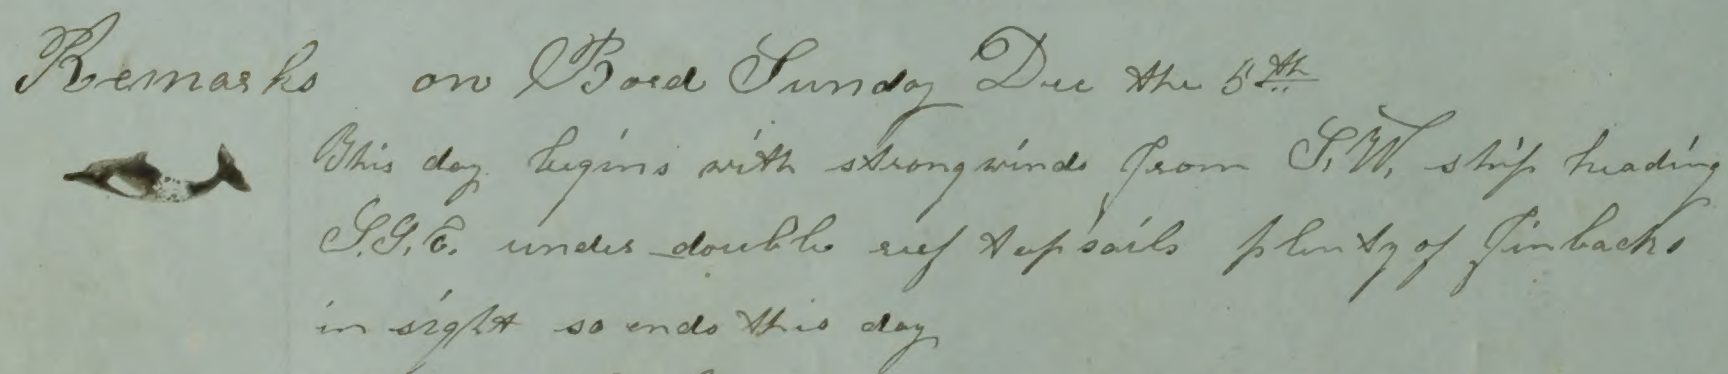 Remarks on Bord Sunday Dec the 5th
This day begins with strong winds from S.W. ship heading
S.S.E. under double reef topsails plenty of Finbacks
in sight so ends this day